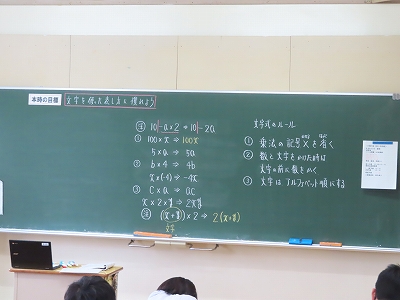 本時の目標
文字を使った表し方に慣れよう
㊟ 10-a×2 ⇒ 10-2a
① 100×x ⇒ 100x
5×a ⇒ 5a
② b×4 ⇒ 4b
x×(-4) ⇒ -4x
③ c×a ⇒ ac
x×2×y ⇒ 2xy
㊟ (x+y)×2 ⇒ 2(x+y)
文字
文字式のルール
① 乗法の記号×を省く
② 数と文字をかけた時は
文字の前に数をかく
③ 文字はアルファベット順にする